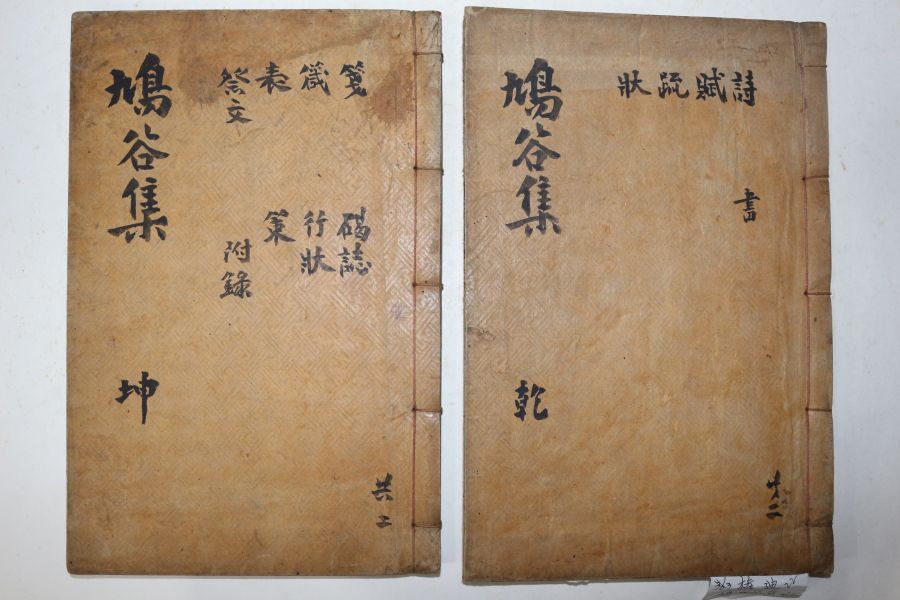 鳩谷集 坤
箋 碣誌
箴 行狀
表 策
祭文 附錄
共二
鳩谷集 乾
詩 書
賦
疏
狀
共二